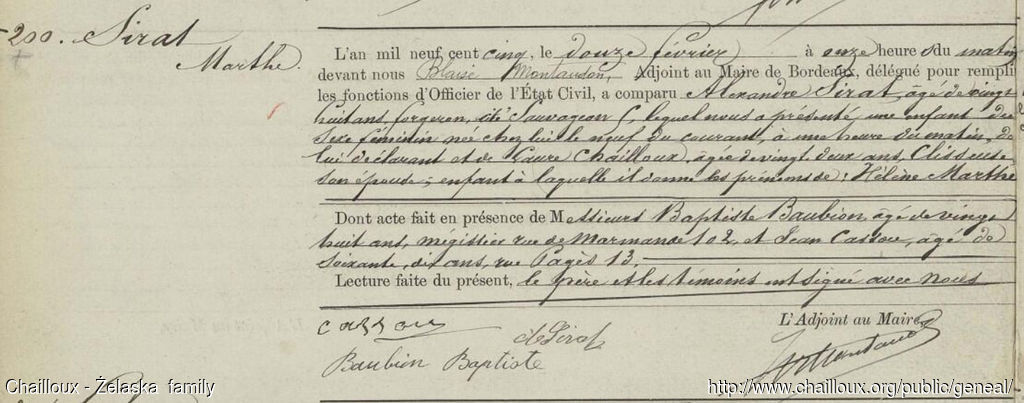 200. Sirat
Marthe.
L'an mil neuf cent cinq, le douze février à onze heures du matin
devant nous Blaise Montaudon, Adjoint au Maire de Bordeaux, délégué pour rempli
les fonctions d'Officier de l'État Civil, a comparu Alexandre Sirat, âgé de vingt
huit ans, forgeron, cité Sauvageau 6, lequel nous a présenté, une enfant du
sexe féminin née chez lui le neuf du courant, à une heure du matin, de
lui déclarant et de Laure Chailloux, âgée de vingt deux ans, Clisseuse
son épouse; enfant à laquelle il donne les prénoms de: Hélène Marthe
Dont acte fait en présence de Messieurs Baptiste Baubion, âgé de vingt
huit ans, mégissier rue de Marmande 102, et Jean Cassou, âgé de
soixante dix ans, rue Pagès 13.
Lecture faite du présent, le père et les témoins ont signé avec nous
L'Adjoint au Maire
Cassou
A Sirat
Baubion Baptiste
Montaudon
Chailloux - Żelaska family
http://www.chailloux.org/public/geneal/